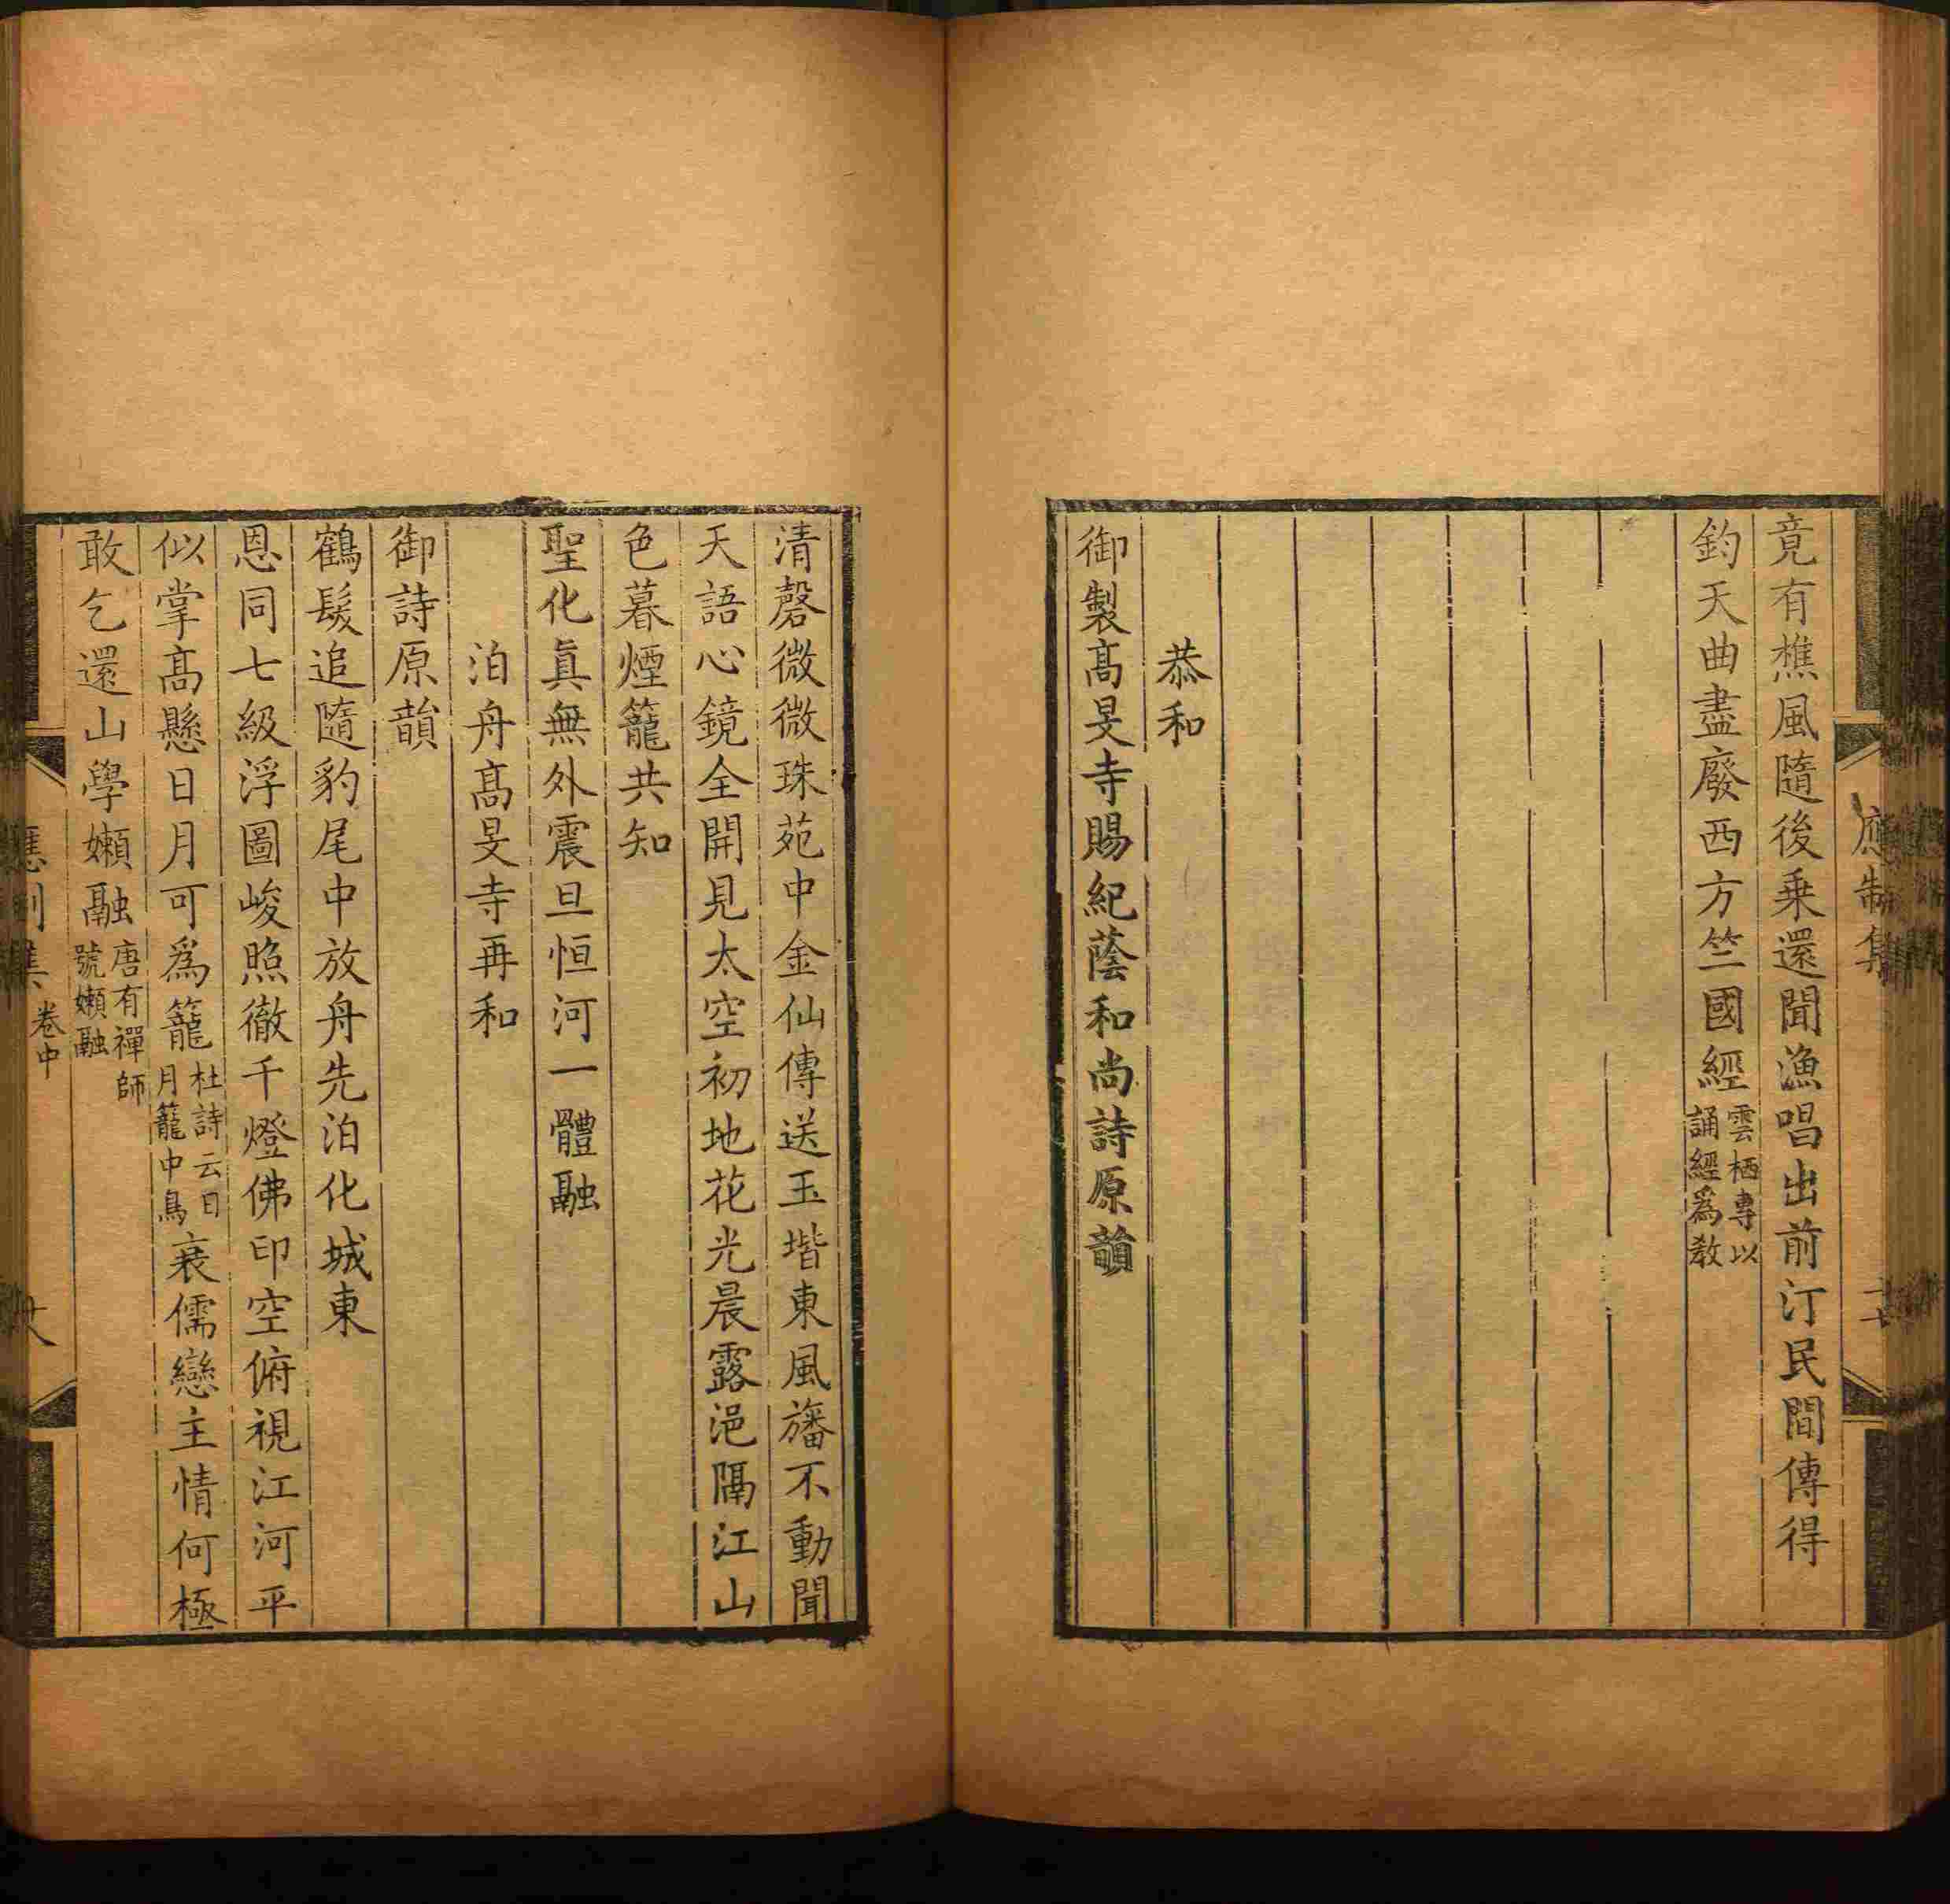 應制集
竟有樵風隨後乗還聞漁唱出前汀民間傳得
鈞天曲盡廢西方竺國經雲栖專以誦經爲教
恭和
御製髙旻寺賜紀蔭和尚詩原韻
清磬微微珠苑中金仙傳送玉堦東風旛不動聞
天語心鏡全開見太空初地花光晨露浥隔江山
色暮煙籠共知
聖化眞無外震旦恒河一體融
泊舟髙旻寺再和
御詩原韻
鶴髮追隨豹尾中放舟先泊化城東
恩同七級浮圖峻照徹千燈佛印空俯視江河平
似掌髙懸日月可爲籠杜詩云日月籠中鳥衰儒戀主情何極
敢乞還山學嬾融唐有禪師號嬾融
應制集 卷中